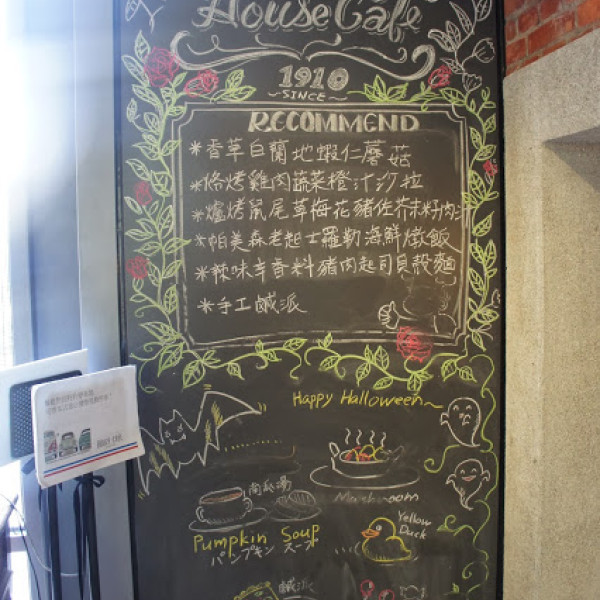 House Cafe
1910
~SINCE~
RECOMMEND
*香草白蘭地蝦仁蘑菇
*烙烤雞肉蔬菜橙汁沙拉
*爐烤鼠尾草梅花豬佐芥末籽肉汁
*帕美森老起士羅勒海鮮燉飯
*辣味辛香料豬肉起司貝殼麵
*手工鹹派
Happy Halloween~
南瓜湯
Mashroom
Yellow
Duck
Pumpkin Soup
パンプキン スープ
鹹派